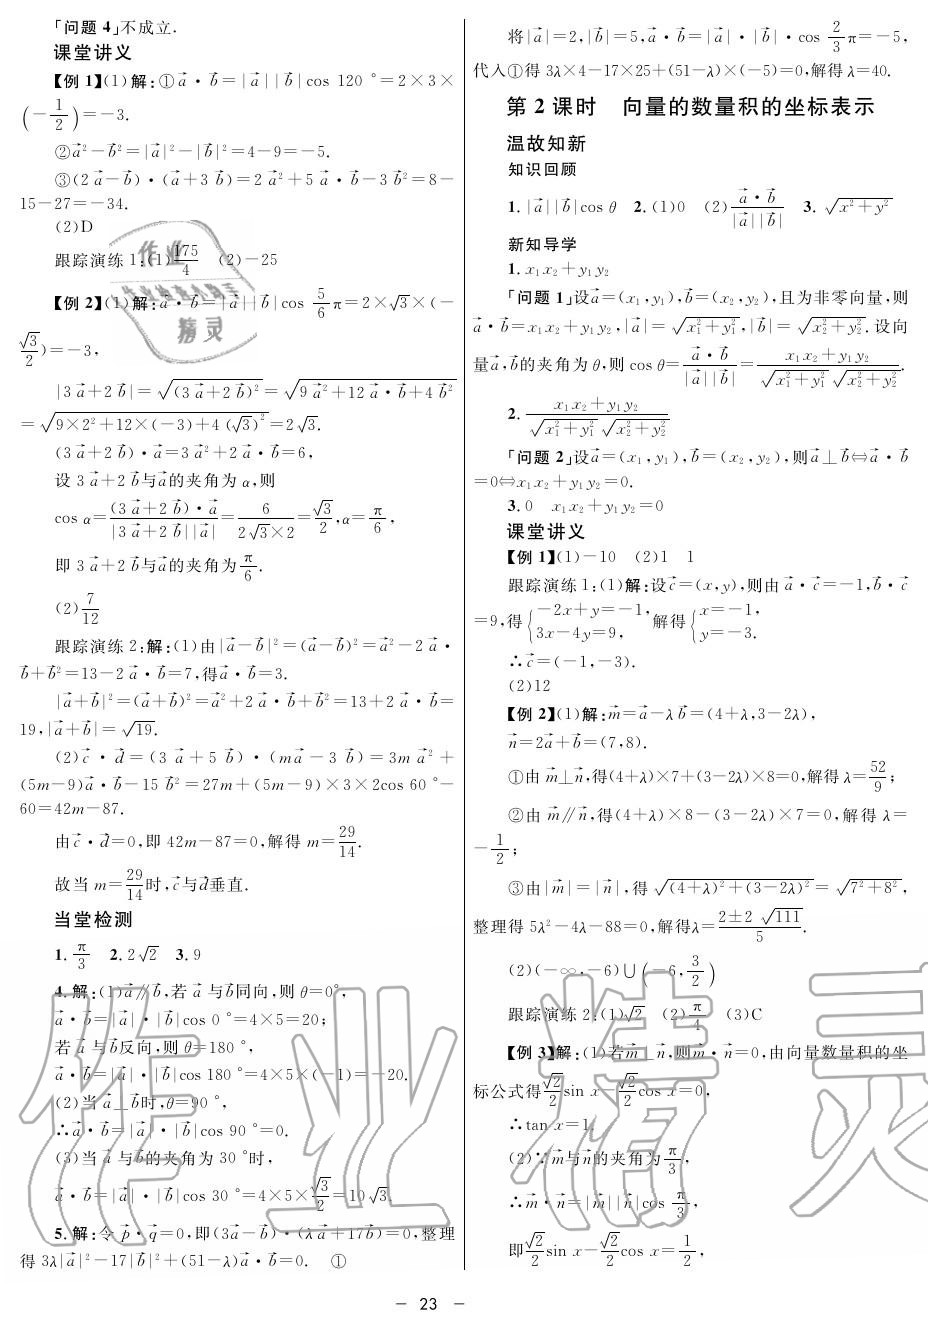 「问题 4」不成立.
课堂讲义
【例 1】(1)解:①a⃗·b⃗=|a⃗||b⃗|cos 120 °=2×3×
(-1/2)=-3.
②a⃗²-b⃗²=|a⃗|²-|b⃗|²=4-9=-5.
③(2 a⃗-b⃗)·(a⃗+3 b⃗)=2 a⃗²+5 a⃗·b⃗-3 b⃗²=8-
15-27=-34.
(2)D
跟踪演练 1:(1)175/4 (2)-25
【例 2】(1)解:a⃗·b⃗=|a⃗||b⃗|cos 5/6 π=2×√3×(-
√3/2)=-3,
|3 a⃗+2 b⃗|=√((3 a⃗+2 b⃗)²)=√(9 a⃗²+12 a⃗·b⃗+4 b⃗²)
=√(9×2²+12×(-3)+4 (√3)²)=2√3.
(3 a⃗+2 b⃗)·a⃗=3 a⃗²+2 a⃗·b⃗=6,
设 3 a⃗+2 b⃗与a⃗的夹角为 α,则
cos α=(3 a⃗+2 b⃗)·a⃗/|3 a⃗+2 b⃗||a⃗|=6/(2√3×2)=√3/2,α=π/6,
即 3 a⃗+2 b⃗与a⃗的夹角为π/6.
(2)7/12
跟踪演练 2:解:(1)由|a⃗-b⃗|²=(a⃗-b⃗)²=a⃗²-2 a⃗·
b⃗+b⃗²=13-2 a⃗·b⃗=7,得a⃗·b⃗=3.
|a⃗+b⃗|²=(a⃗+b⃗)²=a⃗²+2 a⃗·b⃗+b⃗²=13+2 a⃗·b⃗=
19,|a⃗+b⃗|=√19.
(2)c⃗·d⃗=(3 a⃗+5 b⃗)·(ma⃗-3 b⃗)=3m a⃗²+
(5m-9)a⃗·b⃗-15 b⃗²=27m+(5m-9)×3×2cos 60 °-
60=42m-87.
由c⃗·d⃗=0,即 42m-87=0,解得 m=29/14.
故当 m=29/14时,c⃗与d⃗垂直.
当堂检测
1. π/3 2. 2√2 3. 9
4. 解:(1)a⃗∥b⃗,若 a⃗ 与b⃗同向,则 θ=0°,
a⃗·b⃗=|a⃗|·|b⃗|cos 0 °=4×5=20;
若 a⃗ 与b⃗反向,则 θ=180 °,
a⃗·b⃗=|a⃗|·|b⃗|cos 180 °=4×5×(-1)=-20.
(2)当 a⃗⊥b⃗时,θ=90 °,
∴a⃗·b⃗=|a⃗|·|b⃗|cos 90 °=0.
(3)当 a⃗ 与b⃗的夹角为 30 °时,
a⃗·b⃗=|a⃗|·|b⃗|cos 30 °=4×5×√3/2=10√3.
5. 解:令 p⃗·q⃗=0,即(3a⃗-b⃗)·(λ a⃗+17b⃗)=0,整理
得 3λ|a⃗|²-17|b⃗|²+(51-λ)a⃗·b⃗=0. ①
将|a⃗|=2,|b⃗|=5,a⃗·b⃗=|a⃗|·|b⃗|·cos 2/3 π=-5,
代入①得 3λ×4-17×25+(51-λ)×(-5)=0,解得 λ=40.
第 2 课时 向量的数量积的坐标表示
温故知新
知识回顾
1. |a⃗||b⃗|cos θ 2. (1)0 (2)a⃗·b⃗/|a⃗||b⃗| 3. √(x²+y²)
新知导学
1. x₁x₂+y₁y₂
「问题 1」设a⃗=(x₁,y₁),b⃗=(x₂,y₂),且为非零向量,则
a⃗·b⃗=x₁x₂+y₁y₂,|a⃗|=√(x₁²+y₁²),|b⃗|=√(x₂²+y₂²). 设向
量a⃗,b⃗的夹角为 θ,则 cos θ=a⃗·b⃗/|a⃗||b⃗|=(x₁x₂+y₁y₂)/(√(x₁²+y₁²)√(x₂²+y₂²)).
2. (x₁x₂+y₁y₂)/(√(x₁²+y₁²)√(x₂²+y₂²))
「问题 2」设a⃗=(x₁,y₁),b⃗=(x₂,y₂),则a⃗⊥b⃗⇔a⃗·b⃗
=0⇔x₁x₂+y₁y₂=0.
3. 0 x₁x₂+y₁y₂=0
课堂讲义
【例 1】(1)-10 (2)1 1
跟踪演练 1:(1)解:设c⃗=(x,y),则由 a⃗·c⃗=-1,b⃗·c⃗
=9,得{-2x+y=-1, 3x-4y=9, 解得{x=-1, y=-3.
∴c⃗=(-1,-3).
(2)12
【例 2】(1)解:m⃗=a⃗-λ b⃗=(4+λ,3-2λ),
n⃗=2a⃗+b⃗=(7,8).
①由 m⃗⊥n⃗,得(4+λ)×7+(3-2λ)×8=0,解得 λ=52/9;
②由 m⃗∥n⃗,得(4+λ)×8-(3-2λ)×7=0,解得 λ=
-1/2;
③由|m⃗|=|n⃗|,得 √((4+λ)²+(3-2λ)²)=√(7²+8²),
整理得 5λ²-4λ-88=0,解得λ=(2±2√111)/5.
(2)(-∞,-6)∪(-6,3/2)
跟踪演练 2:(1)√2 (2)π/4 (3)C
【例 3】解:(1)若m⃗⊥n⃗,则m⃗·n⃗=0,由向量数量积的坐
标公式得√2/2 sin x-√2/2 cos x=0,
∴tan x=1.
(2)∵m⃗与n⃗的夹角为π/3,
∴m⃗·n⃗=|m⃗||n⃗|cos π/3,
即√2/2 sin x-√2/2 cos x=1/2,
- 23 -
作业精灵
作业
精灵